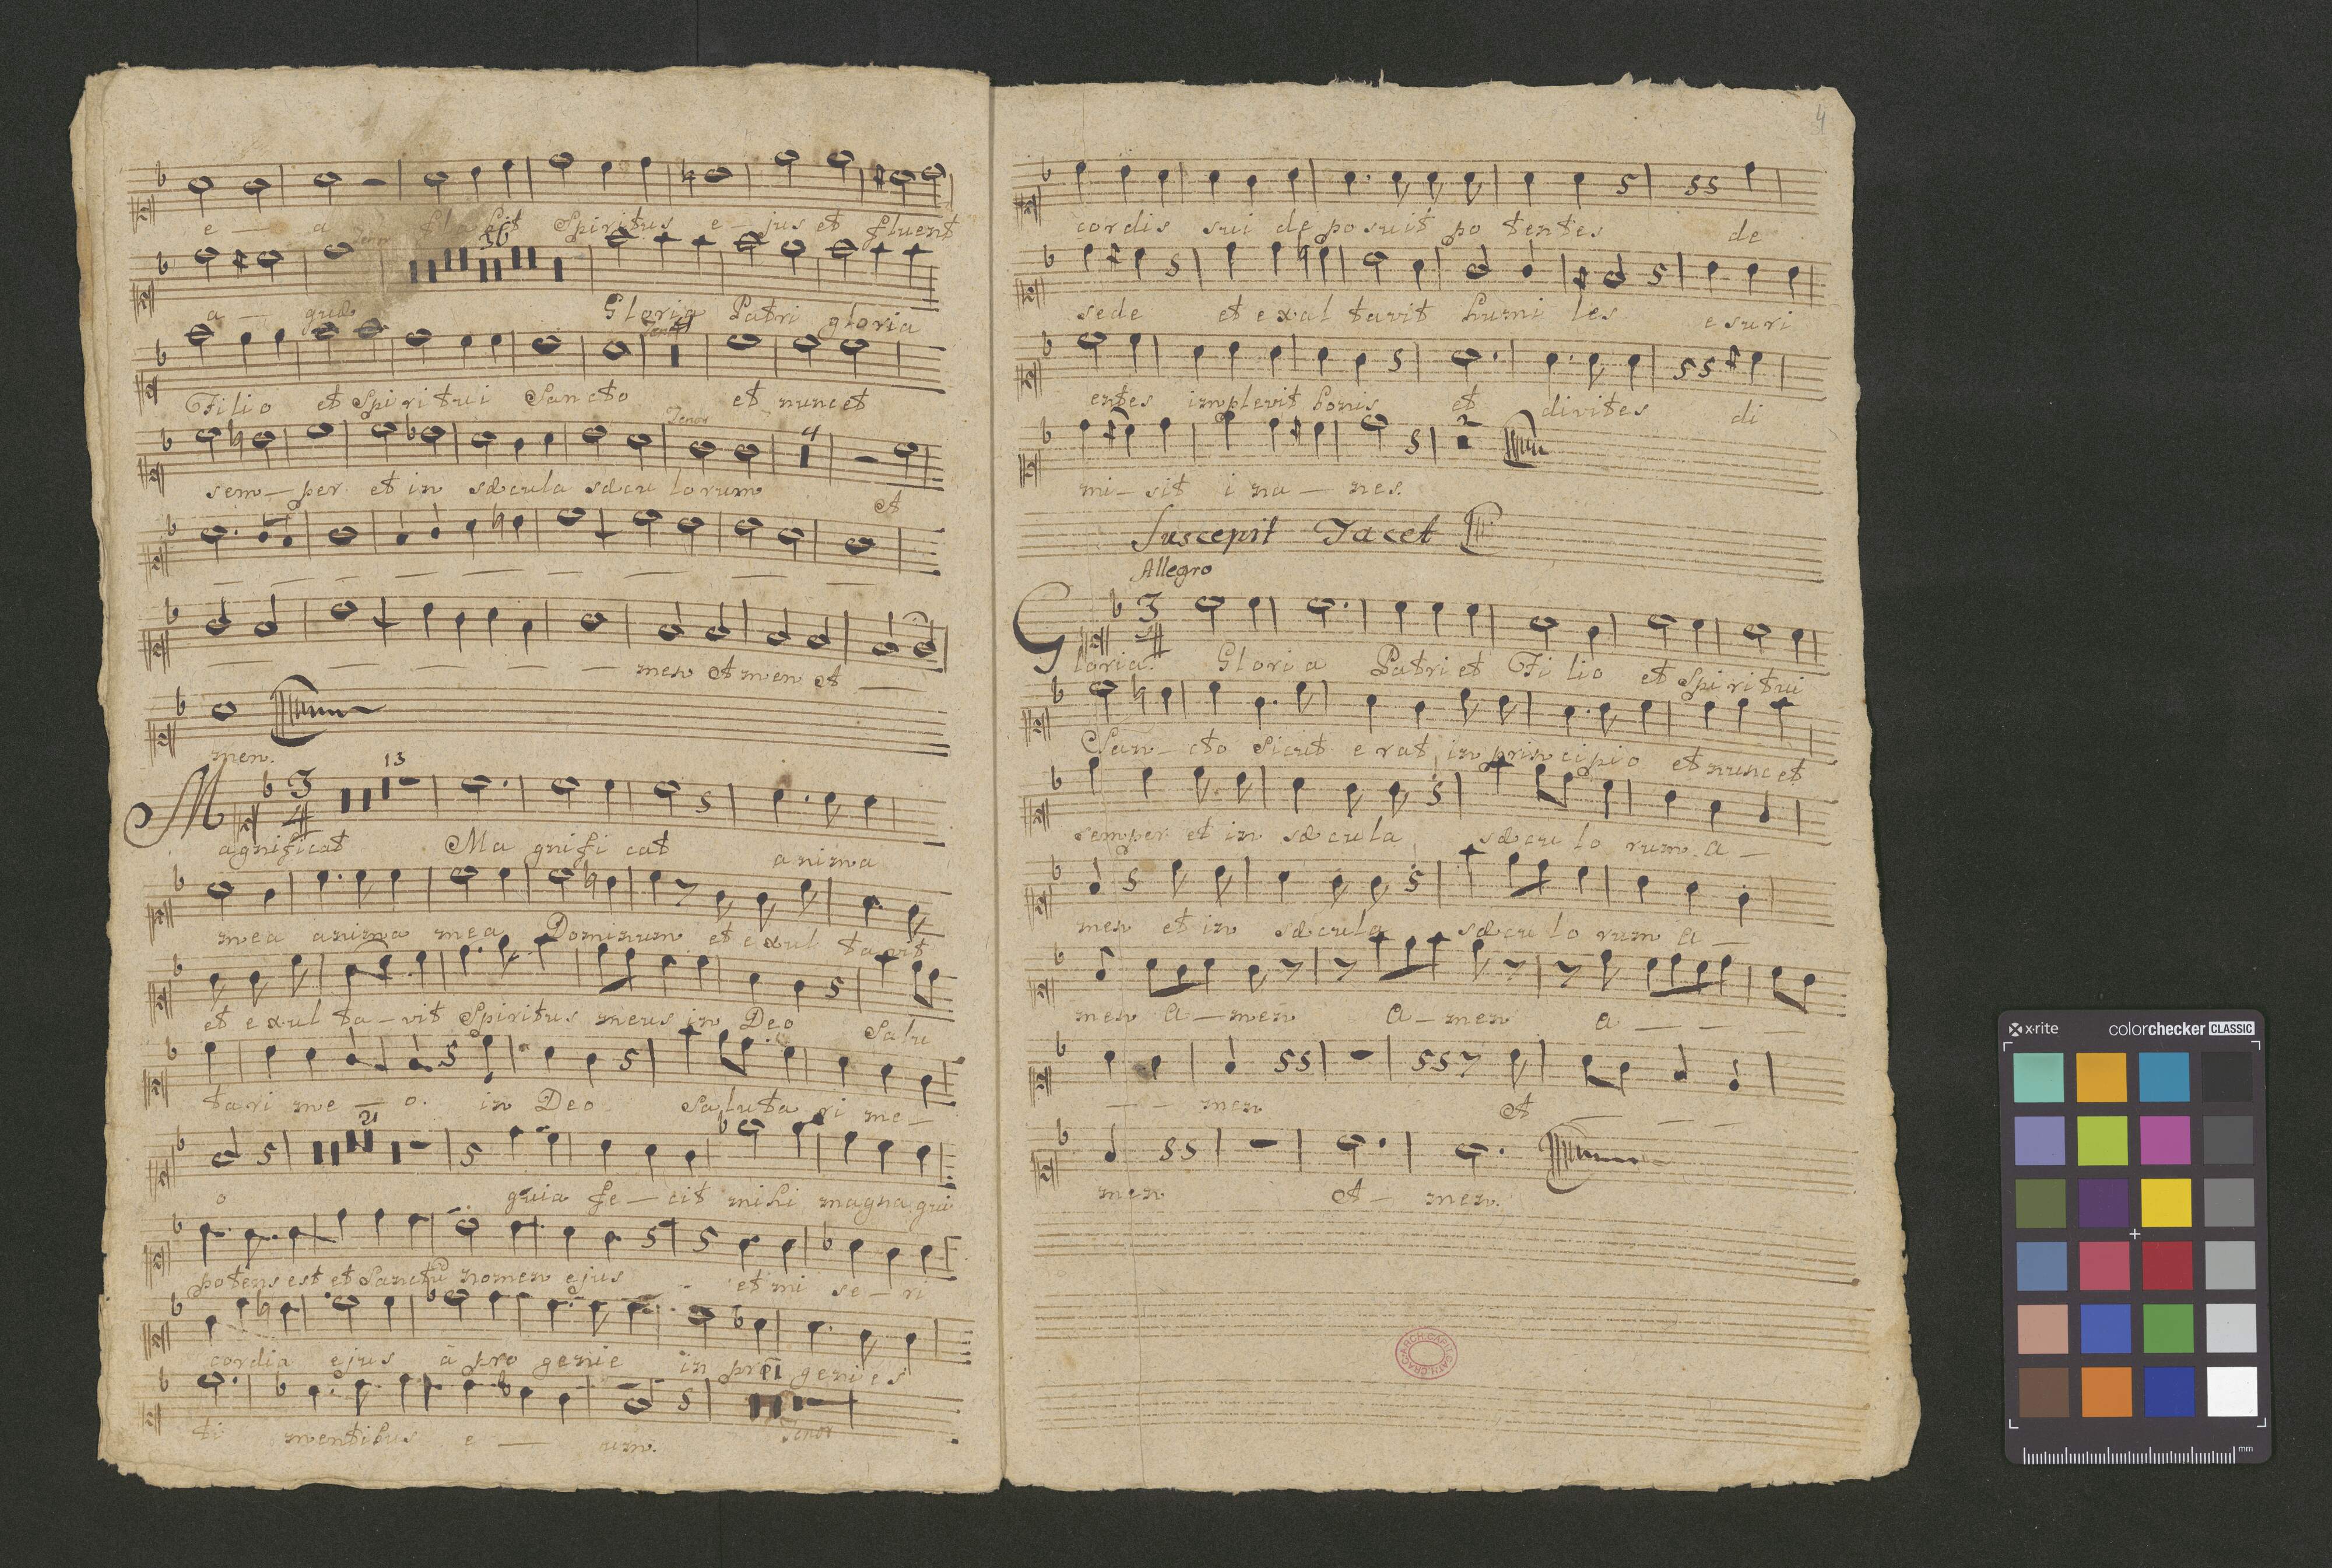 e — a flabit Spiritus e — jus et fluent
36
a — quæ Gloria Patri gloria
Tenor
Filio et Spiritui Sancto et nunc et
Tenor
4
sem — per et in sæcula sæcu lorum A
— men A men A —
men.
3 4 13
Magnificat Ma gnifi cat anima
mea anima mea Dominum et exul tavit
et exul ta — vit Spiritus meus in Deo Salu
tari me — o. in Deo Saluta ri me —
21
o quia fe — cit mihi magna qui
potens est et Sanctū nomen ejus et mi se — ri
cordia ejus à pro genie in pro genies
11
ti mentibus e — um.
Tenor
4
cordis sui deposuit po tentes de
sede et exal tavit humi les esuri
entes implevit bonis et divites di
2
mi — sit i na — nes.
Suscepit Tacet
Allegro
3 4
Gloria. Gloria Patri et Fi lio et Spi ritui
San — cto Sicut erat in principio et nunc et
semper et in sæcula sæcu lo rum. a —
men et in sæcula sæcu lo rum a —
men a — men a — men a — —
— — men A — — —
men A — men.
x-rite colorchecker CLASSIC
mm